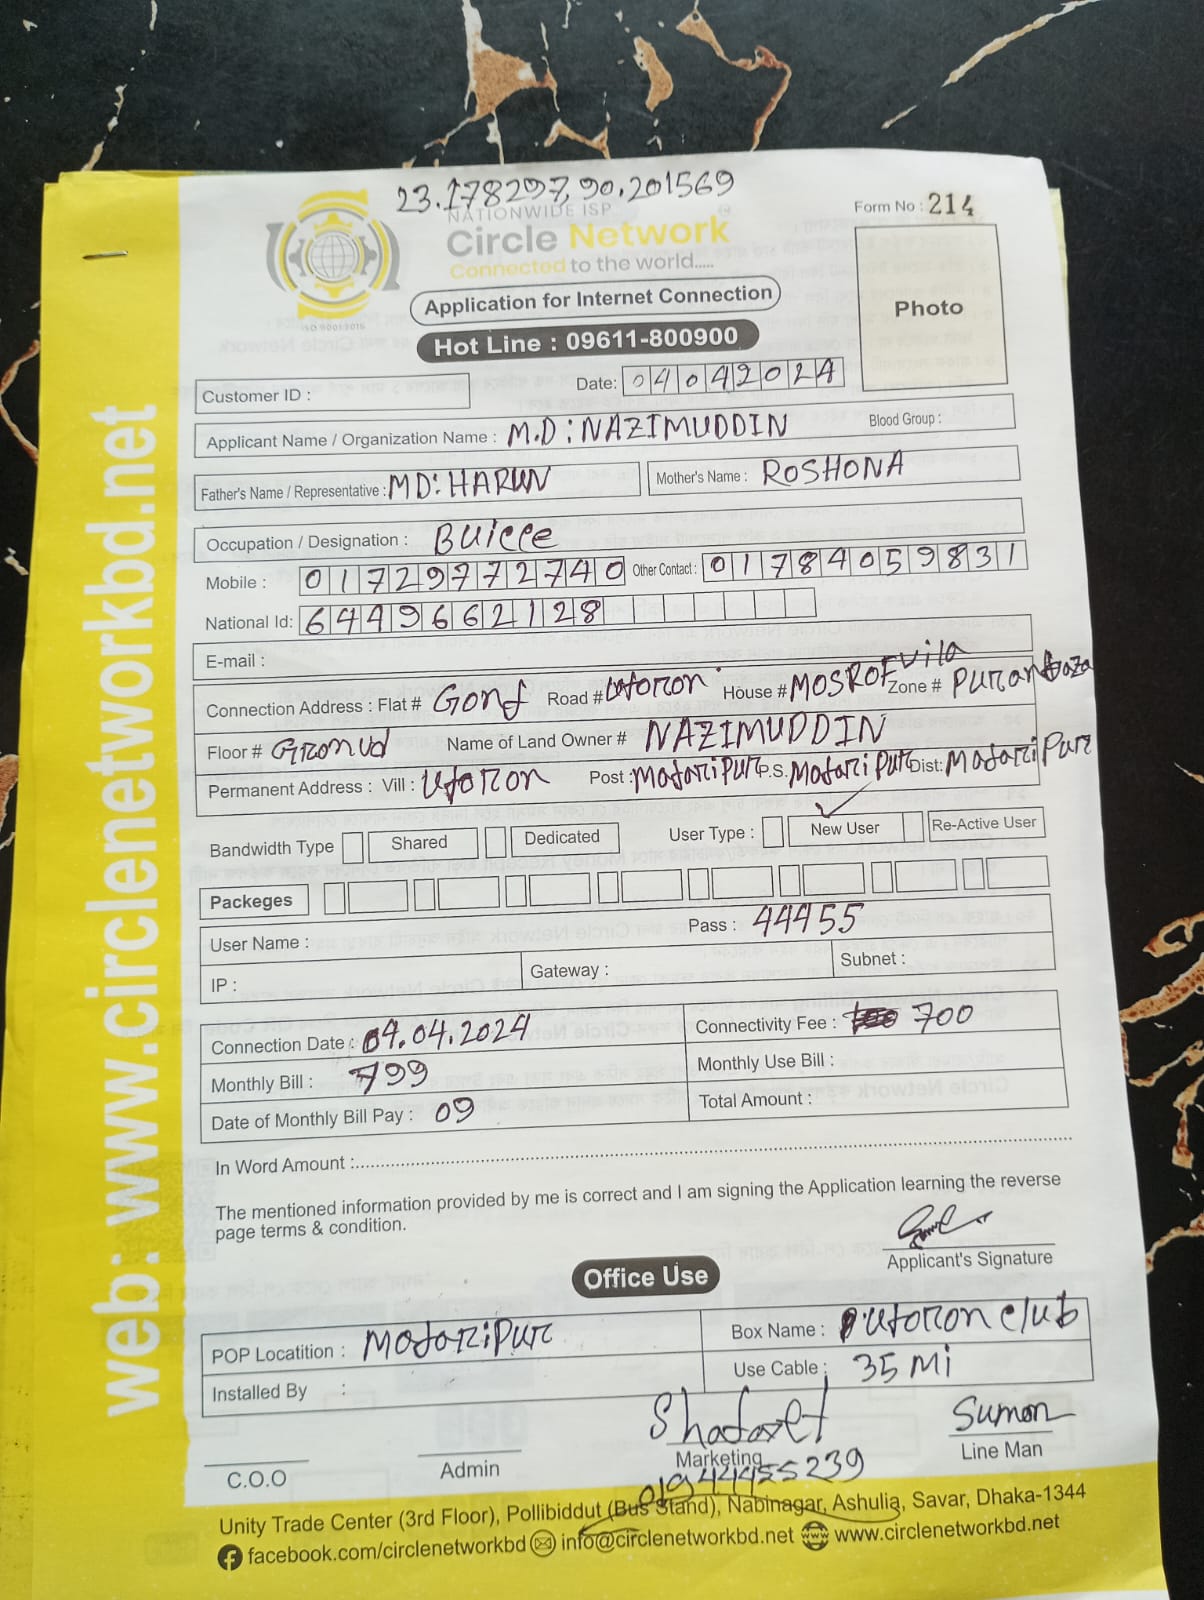 23.178297, 90.201569
NATIONWIDE ISP
Circle Network
Connected to the world.....
ISO 9001:2015
Form No : 214
Photo
Application for Internet Connection
Hot Line : 09611-800900
Customer ID :
Date: 04042024
Applicant Name / Organization Name : M.D : NAZIMUDDIN Blood Group :
Father's Name / Representative : MD: HARUN Mother's Name : ROSHONA
Occupation / Designation :
Mobile : 01729772740 Other Contact : 01784059831
National Id: 6449662128
E-mail :
Connection Address : Flat # Road # House # MOSROF vila Zone #
Floor # Name of Land Owner # NAZIMUDDIN
Permanent Address : Vill : Utoron Post : MadariPur P.S. MadariPur Dist: MadariPur
Bandwidth Type Shared Dedicated User Type : New User Re-Active User
Packeges
User Name : Pass : 44455
IP : Gateway : Subnet :
Connection Date : 04.04.2024 Connectivity Fee : 700
Monthly Bill : 799 Monthly Use Bill :
Date of Monthly Bill Pay : 09 Total Amount :
In Word Amount :
The mentioned information provided by me is correct and I am signing the Application learning the reverse
page terms & condition.
Applicant's Signature
Office Use
POP Locatition : MadariPur Box Name : utoron club
Installed By : Use Cable : 35 Mi
Sumon
C.O.O Admin Marketing Line Man
01944455239
Unity Trade Center (3rd Floor), Pollibiddut (Bus Stand), Nabinagar, Ashulia, Savar, Dhaka-1344
facebook.com/circlenetworkbd info@circlenetworkbd.net www.circlenetworkbd.net
web: www.circlenetworkbd.net